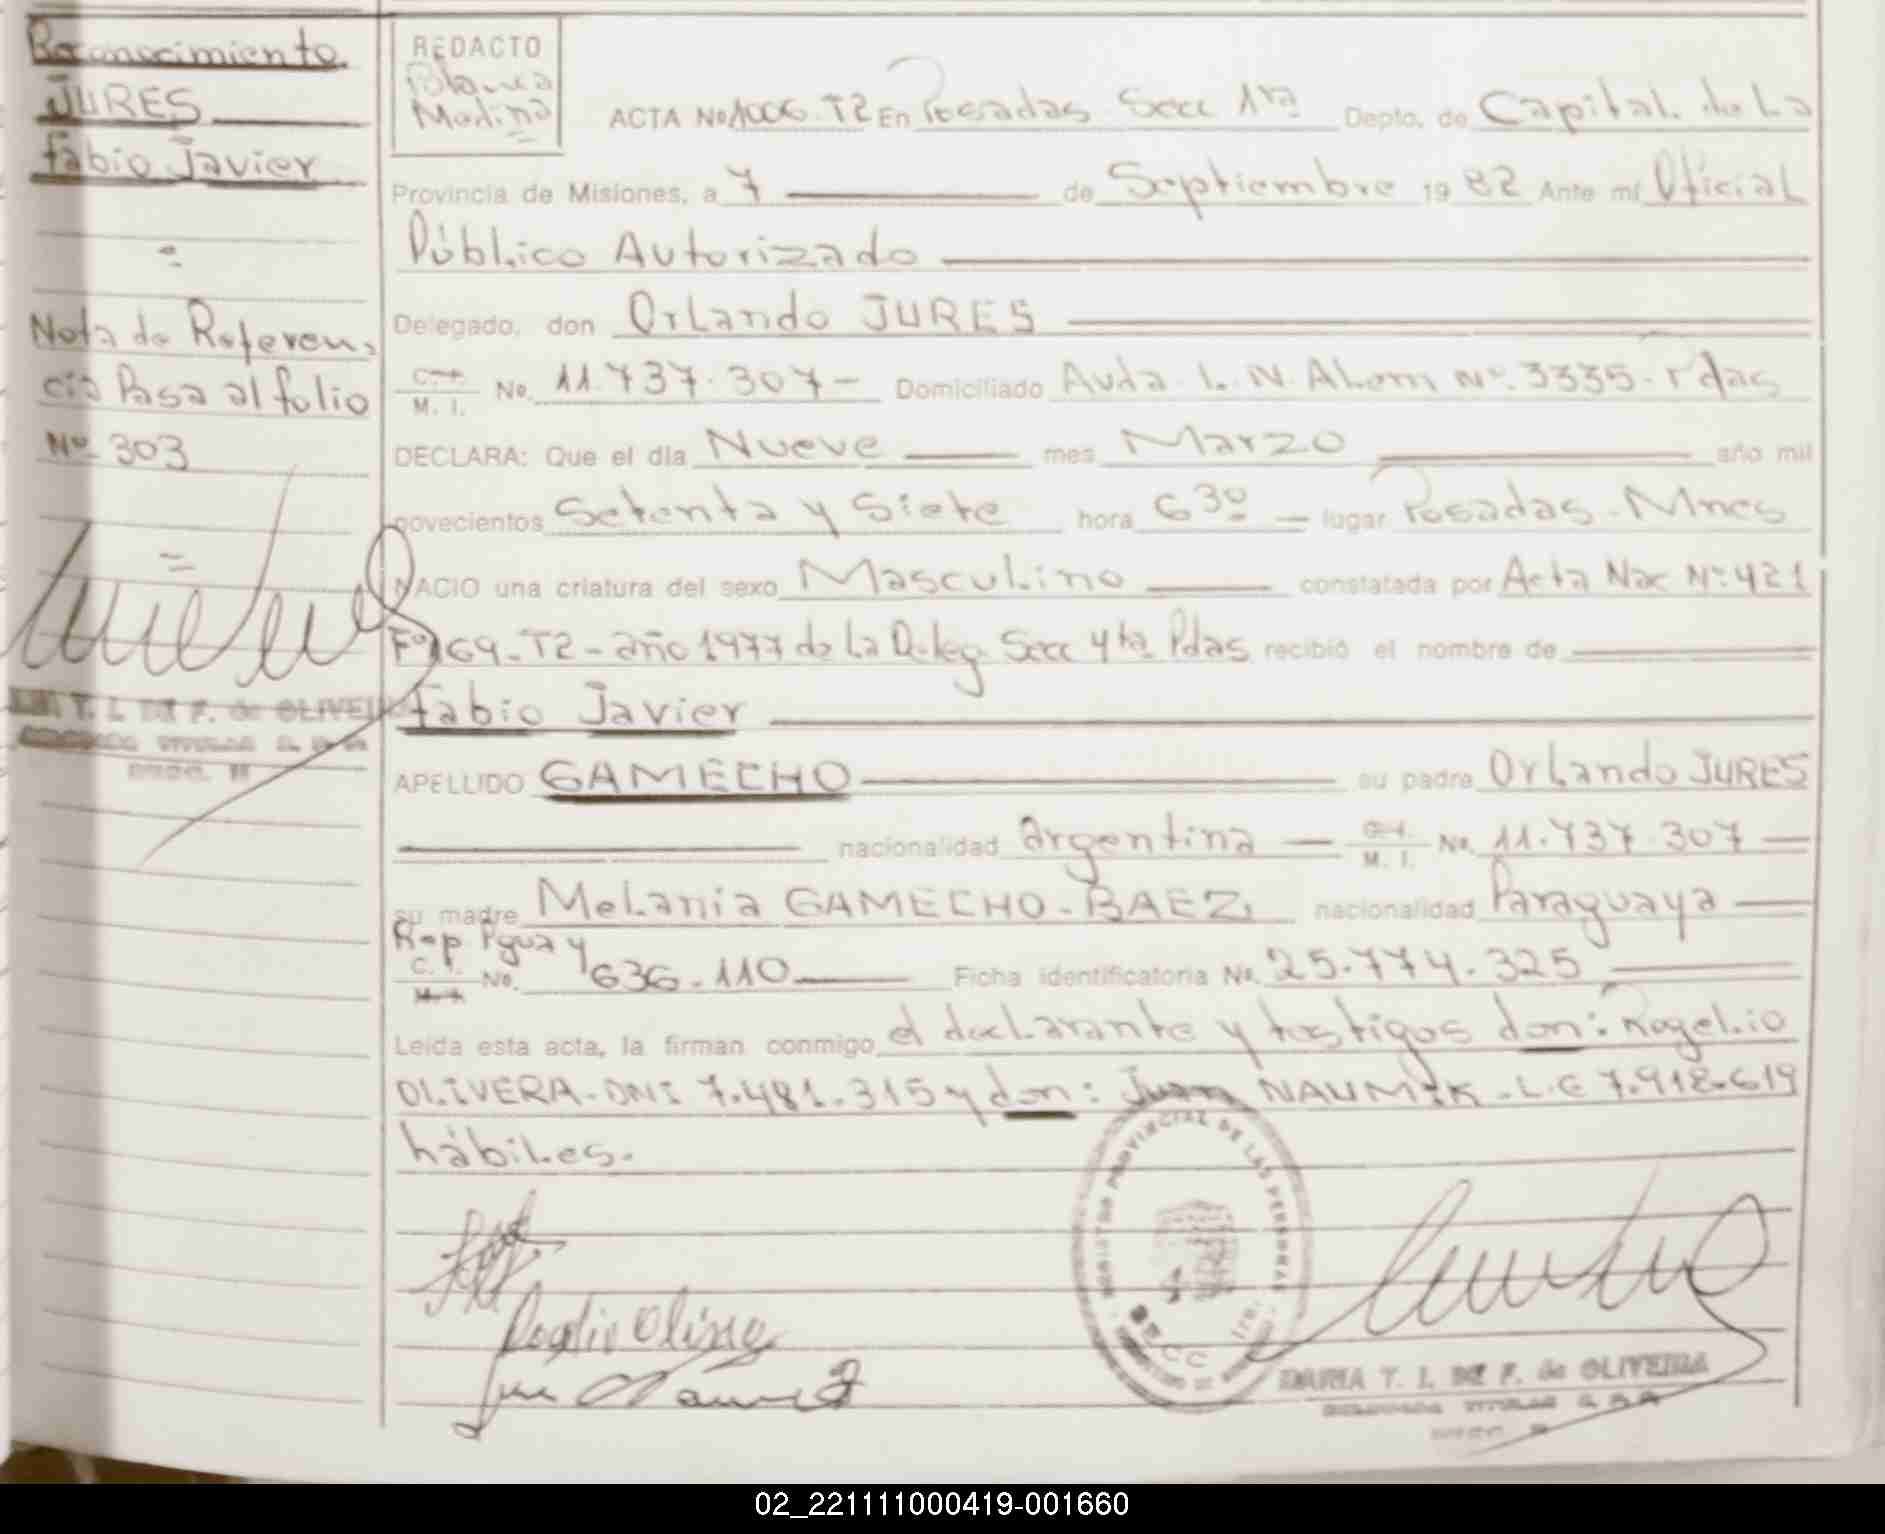 Reconocimiento
JURES
Fabio Javier
Nota de Referen-
cia Pasa al folio
Nº 303
T. I. DE F. de OLIVEIRA
REDACTO
Blanca
Medina
ACTA No 1006. T2 En Posadas Secc 1ra Depto. de Capital. de La
Provincia de Misiones, a 7 de Septiembre 19 82 Ante mí Oficial
Público Autorizado
Delegado, don Orlando JURES
C. I.
M. I. No. 11.737.307- Domiciliado Avda. L. N. Alem Nº. 3335. Pdas
DECLARA: Que el día Nueve mes Marzo año mil
novecientos Setenta y Siete hora 6 30 lugar Posadas - Mnes
NACIO una criatura del sexo Masculino constatada por Acta Nac Nº: 421
Fº 169 - T2 - año 1977 de La Deleg. Secc 4ta Pdas recibió el nombre de
Fabio Javier
APELLIDO GAMECHO su padre Orlando JURES
nacionalidad argentina M. I. No. 11.737.307
su madre Melania GAMECHO - BAEZ nacionalidad Paraguaya
Rep Pguay
C. I.
M. I. No. 636.110 Ficha identificatoria No. 25.774.325
Leída esta acta, la firman conmigo el declarante y testigos don: Rogelio
OLIVERA - DNI 7.481.315 y don: Juan NAUMIK - L.E 7.918.619
hábiles.
PROVINCIAL DE LAS PERSONAS
T. I. DE F. de OLIVEIRA
02_221111000419-001660